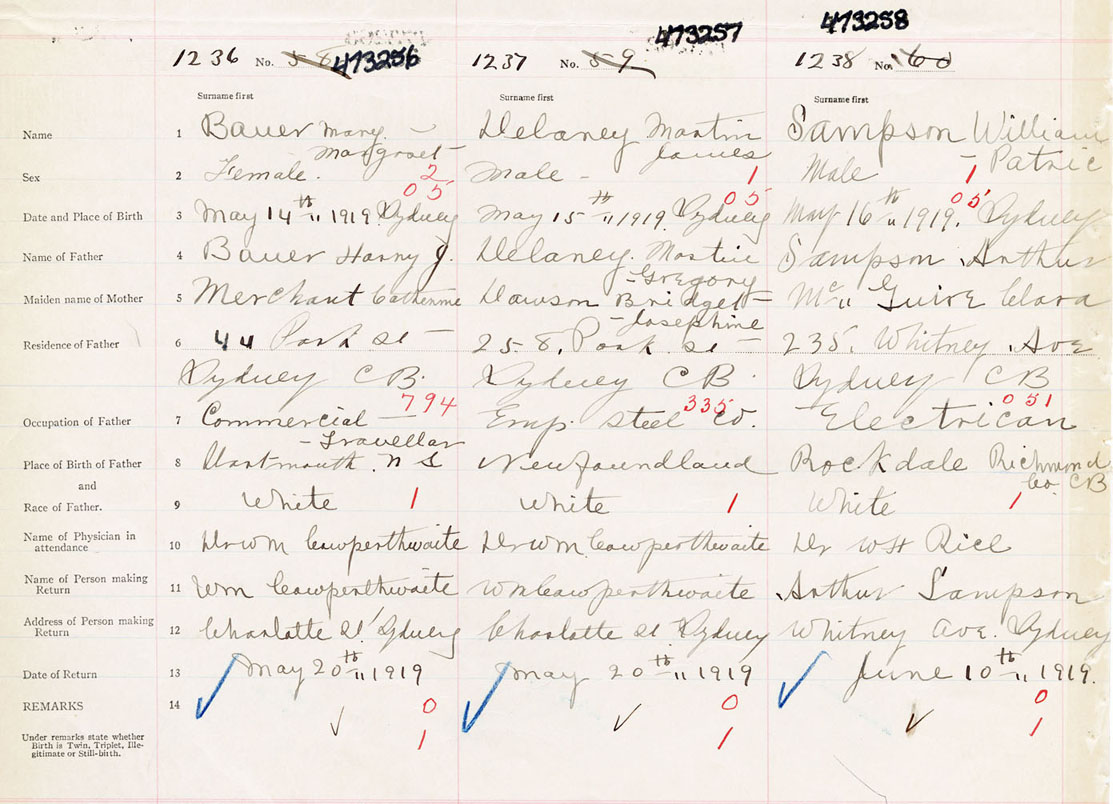 473258
473257
1236 No. 58 473256 1237 No. 59 1238 No. 60
Surname first Surname first Surname first
Name 1 Bauer Mary Delaney Martin Sampson William
Margret James Patric
Sex 2 Female. 2 Male - 1 Male - 1
05 05 05
Date and Place of Birth 3 May 14th " 1919. Sydney May 15th " 1919. Sydney May 16th " 1919. Sydney
Name of Father 4 Bauer Harry J. Delaney. Martin Sampson Arthur
-Gregory
Maiden name of Mother 5 Merchant Catherine Dawson Bridget- Mc " Guire Clara
-Josephine
Residence of Father 6 44 Park St - 258, Park St - 235. Whitney Ave
Sydney CB. Sydney CB. Sydney CB
794 335 051
Occupation of Father 7 Commercial Emp. Steel Co. -Electrican
-Travellar
Place of Birth of Father 8 Dartmouth. NS Newfoundland Rockdale Richmond
and Co. CB
Race of Father. 9 White 1 White 1 White 1
Name of Physician in
attendance 10 Dr Wm Cowperthwaite Dr Wm Cowperthwaite Dr WH Rice
Name of Person making
Return 11 Wm Cowperthwaite Wm Cowperthwaite Arthur Sampson
Address of Person making
Return 12 Charlotte St Sydney Charlotte St Sydney Whitney Ave. Sydney
Date of Return 13 May 20th " 1919 May 20th " 1919 June 10th " 1919.
REMARKS 14 0 0 0
Under remarks state whether
Birth is Twin, Triplet, Ille-
gitimate or Still-birth. 1 1 1